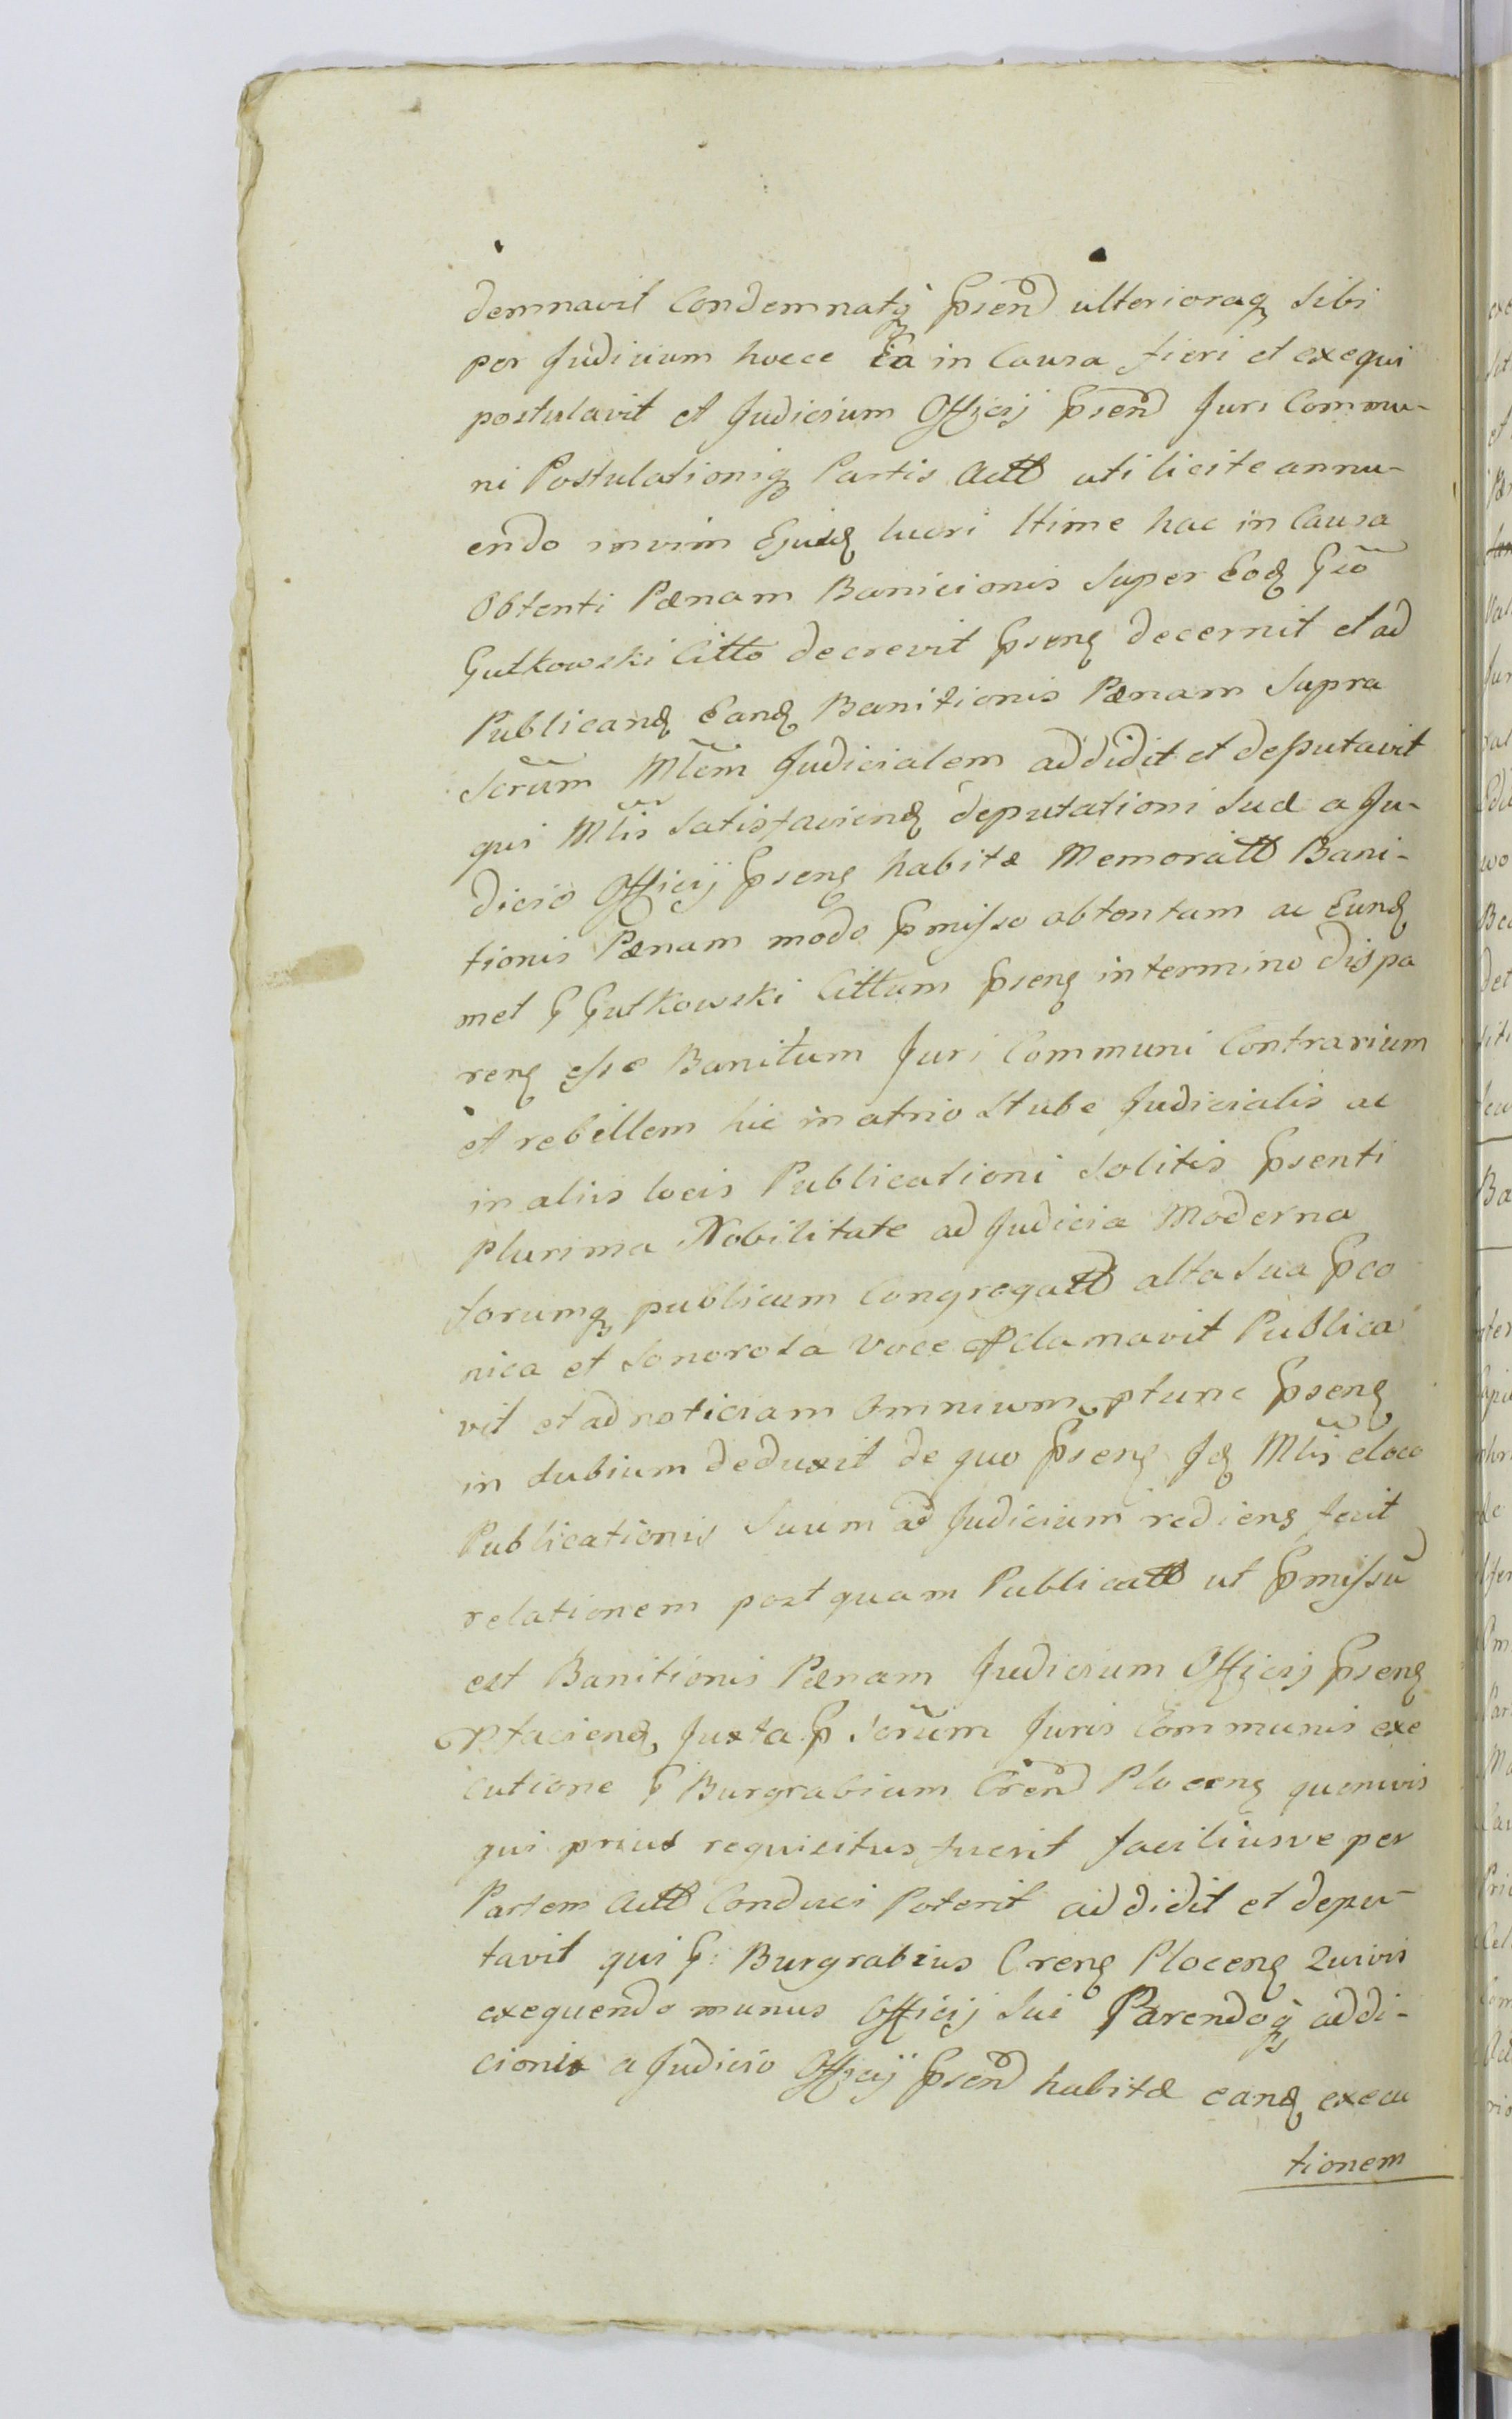 demnavit Condemnatq Psend ulterioraq Sibi
per Judicium hocce Ea in Causa fieri et exequi
postulavit et Judicium Officij Psend Juri Commu-
ni Postulationiq Partis Actt uti licite annu-
endo in vim Ejusq lucri Itime hac in Causa
Obtenti Pænam Banicionis Super Eoq Gso
Gutkowski Citto decrevit Pseng decernit et ad
Publicanq Eanq Banitionis Pænam Supra
Scrum Mlem Judicialem addidit et deputavit
qui Mlis Satisfacienq deputationi Suæ a Ju-
dicio Officij Pseng habitæ Memoratt Bani-
tionis Pænam modo Pmisso obtentam ac Eunq
met G Gutkowski Cittum Pseng in termino dispa
reng esse Banitum Juri Communi Contrarium
et rebellem hic in atrio Stube Judicialis ac
in aliis locis Publicationi Solitis Psenti
plurima Nobilitate ad Judicia Moderna
forumq publicum Congregatt alta Sua Pco
nica et Sonorosa Voce Pclamavit Publica
vit et ad noticiam Omnium ptunc Pseng
in dubium deduxit de quo Pseng Jq Mlis eloco
Publicationis Suum ad Judicium rediens fecit
relationem post quam Publicatt ut Pmissu
est Banitionis Pænam Judicium Officij Pseng
Pfacienq Juxta P Scrum Juris Communis exe
cutione G Burgrabium Crend Ploceng quemvis
qui prius requisitus fuerit faciliusve per
Partem Actt Conduci Poterit addidit et depu-
tavit qui G: Burgrabius Creng Ploceng Quivis
exequendo munus Officij Sui Parendoq addi-
cionis a Judicio Officij Psend habitæ eanq execu
tionem